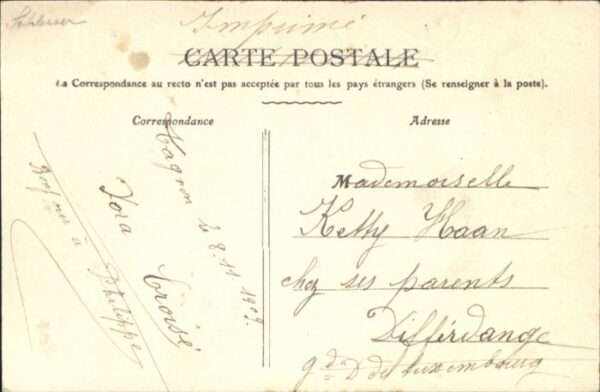 Imprimé
CARTE POSTALE
La Correspondance au recto n'est pas acceptée par tous les pays étrangers (Se renseigner à la poste).
Correspondance
Adresse
le 8.11.1909.
Croisé
Bonjour à
Philippe
Mademoiselle
Ketty Haan
chez ses parents
Differdange
gd. D. de Luxembourg